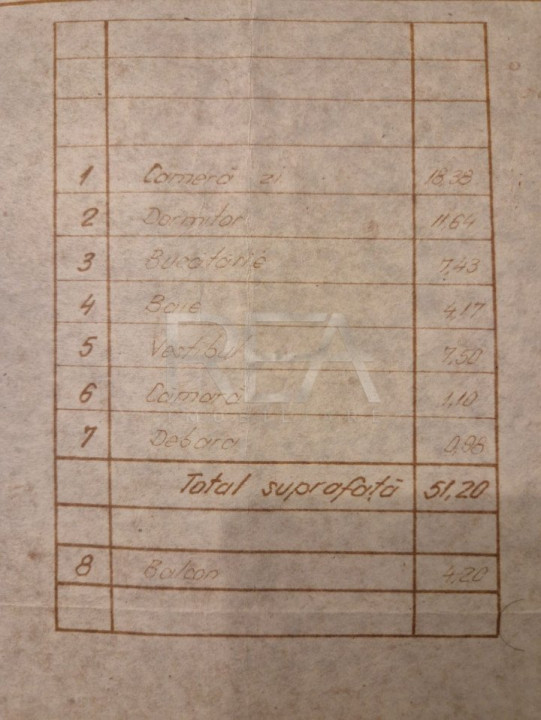 1 Cameră zi 18,38
2 Dormitor 11,64
3 Bucătărie 7,43
4 Baie 4,17
5 Vestibul 7,50
6 Cămară 1,10
7 Debara 0,98
Total suprafață 51,20
8 Balcon 4,20
REA